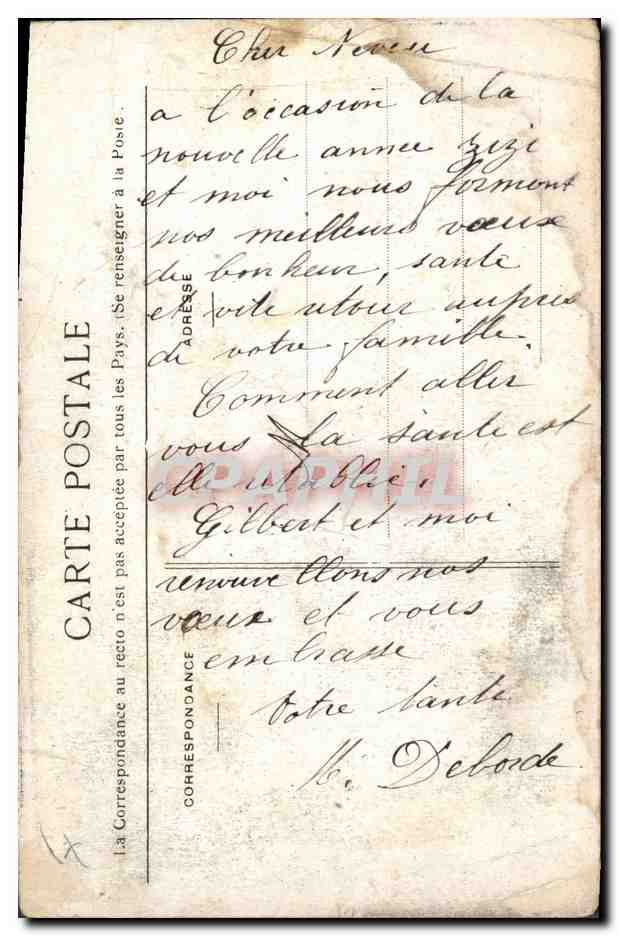 Cher Neveu
a l'occasion de la
nouvelle annee zizi
et moi nous formont
nos meilleurs vœux
de bonheur, sante
et vite retour aupres
de votre famille.
Comment aller
vous la sante est
elle retablie.
Gilbert et moi
renouvellons nos
vœux et vous
embrasse
Votre tante
M. Deborde
CARTE POSTALE
La Correspondance au recto n'est pas acceptée par tous les Pays. (Se renseigner à la Poste.
ADRESSE
CORRESPONDANCE
CPAPHIL